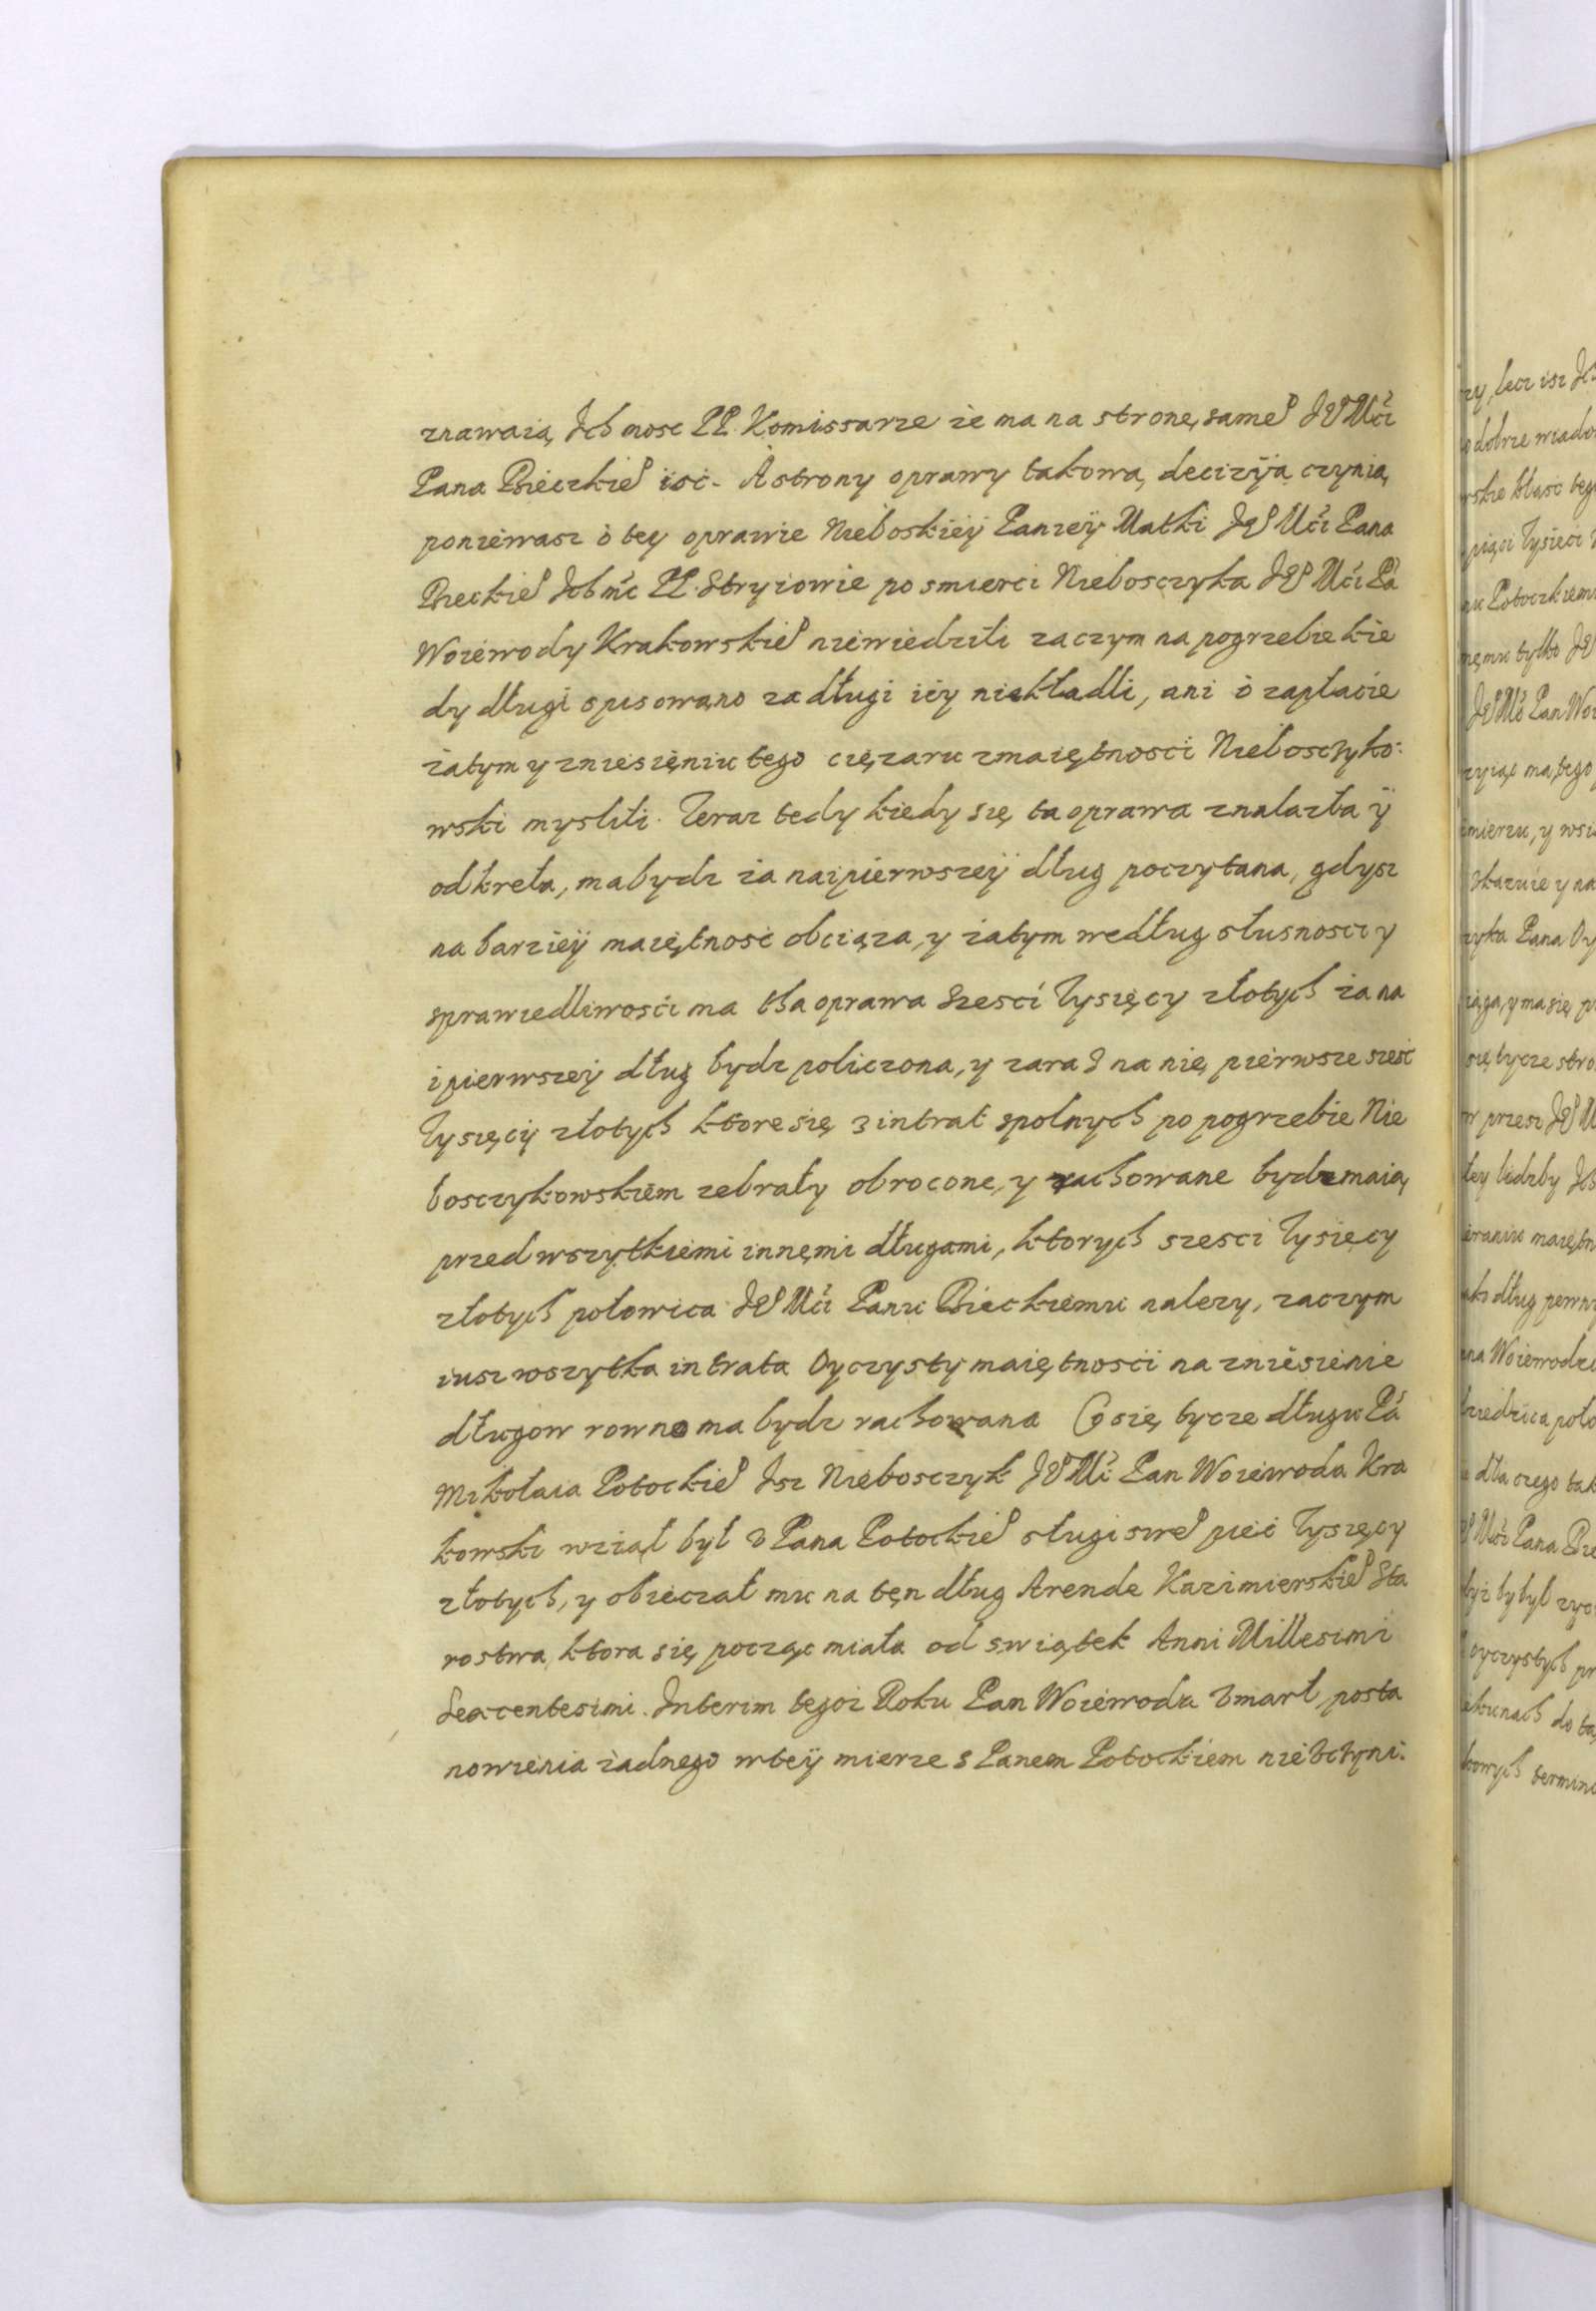 znawaią Jch mosc PP. Komissarze ze ma na stronę same᷎ Je᷎ Mći
Pana Bieczkie᷎ iść. A strony oprawy takową decizyią czynią,
poniewasz o tey oprawie Nieboskiey Paniey Matki Je᷎ Mći Pana
Bieckie᷎ Jchmć PP. Stryiowie po smierci Nieboszczyka Je᷎ Mći Pá
Woiewody Krakowskie᷎ niewiedzili zaczym na pogrzebie kie
dy długi spisowano za długi iey niekładli, ani o zapłacie
zatym y zniesięniu tego ciężaru zmaiętnosci Nieboszczyko:
wski myslili. Teraz tedy kiedy się ta oprawa znalazła y
odkreła, ma bydz za naipierwszey dług poczytana, gdysz
na barziey maiętnosc obciąza, y zatym według słusnosci y
sprawiedliwosci ma tha oprawa Szesci Tysięcy złotych za na
ipierwszey dług bydz policzona, y zaraz na nię pierwsze szesc
Tysięcy złotych ktore się z intrat spolnych po pogrzebie Nie
bosczykowskiem zebrały obrocone, y rachowane bydz maią,
przed wszytkiemi innęmi długami, ktorych szesci Tysięcy
złotych połowica Je᷎ Mći Panu Bieckiemu nalezy, zaczym
iusz wszytka intrata Oyczysty maiętnoscii na zniesienie
długow rowno ma bydz rachowana Co się tycze długu Pá
Mikołaia Potockie᷎ Jsz Nieboszczyk Je᷎ Mć Pan Woiewoda Kra
kowski wziął był v Pana Potockie᷎ sługi swe᷎ pieć Tysięcy
złotych, y obieczał mu na tęn dług Arende Kazimierskie᷎ Sta
rostwa, ktora się począc miała od swiątek Anni Millesimi
Sexcentesimi. Interim tegoz Roku Pan Woiewoda Vmarł, posta
nowienia żadnego wtey mierze s Panem Potockiem nie Vczyni: